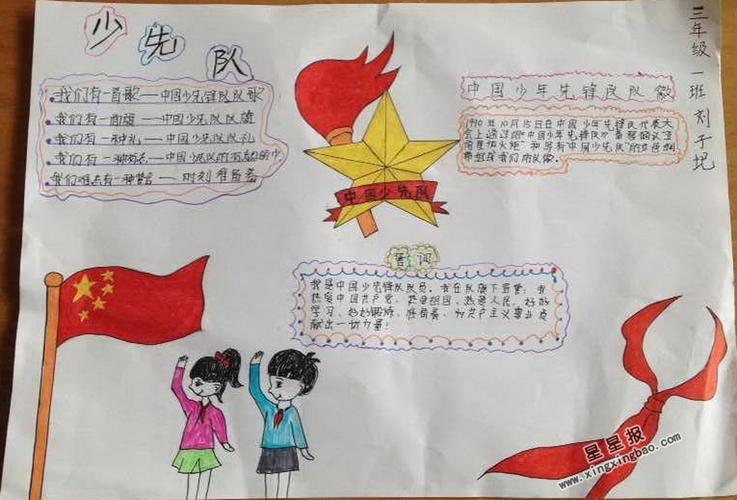 少先队
我们有一首歌——中国少先队队歌
我们有一面旗——中国少先队队旗
我们有一种礼——中国少先队队礼
我们有一种标志——中国少先队的
我们难忘有一种誓言——时刻准备着
中国少先队
中国少年先锋队队徽
三年级一班刘子圯
年10月15日在中国少年先锋队代表大
会上通过的“中国少年先锋队”章程的
“和写有“中国少先队”的
组成我们的队徽。
誓词
我是中国少先锋队队员。我在队旗下宣誓，我
热爱中国共产党、热爱祖国、热爱人民，好好
学习、好好锻炼、准备着，为共产主义事业贡
献出一切力量！
星星报
www.xingxingbao.com